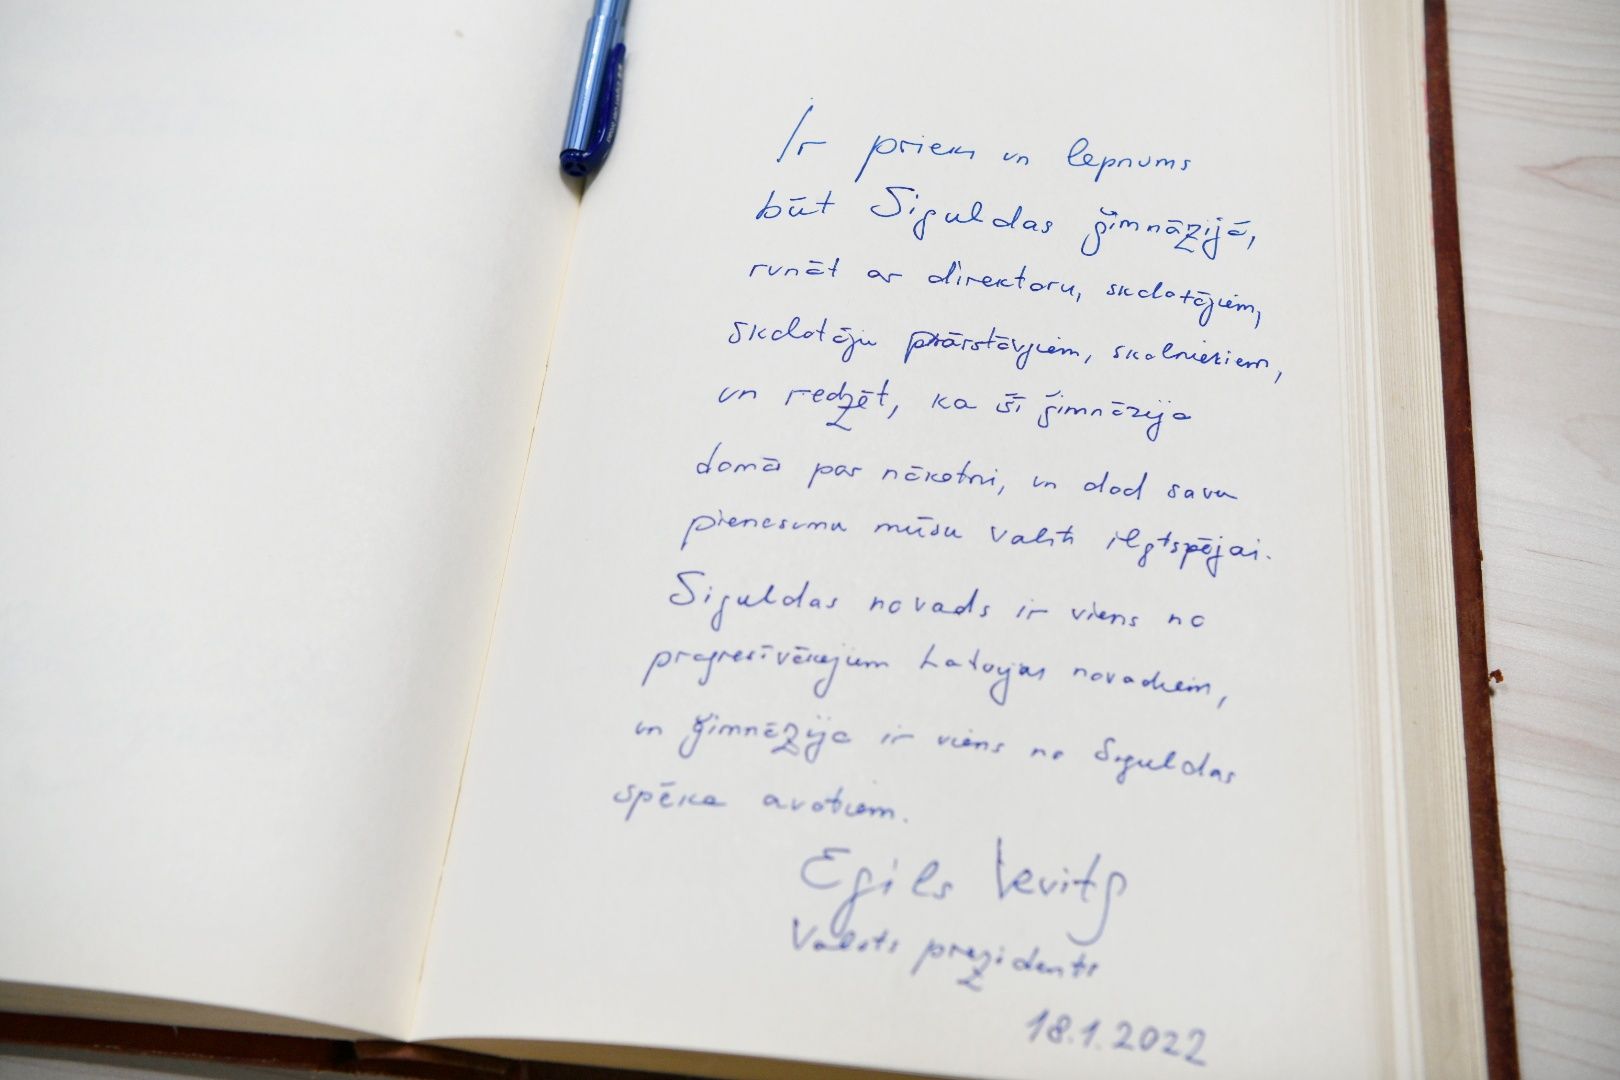 Ir prieks un lepnums
būt Siguldas ģimnāzijā,
runāt ar direktoru, skolotājiem,
skolotāju pārstāvjiem, skolniekiem,
un redzēt, ka šī ģimnāzija
domā par nākotni, un dod savu
pienesumu mūsu valsts ilgtspējai.
Siguldas novads ir viens no
progresīvākajiem Latvijas novadiem,
un ģimnāzija ir viens no Siguldas
spēka avotiem.
Egils Levits
Valsts prezidents
18.1.2022